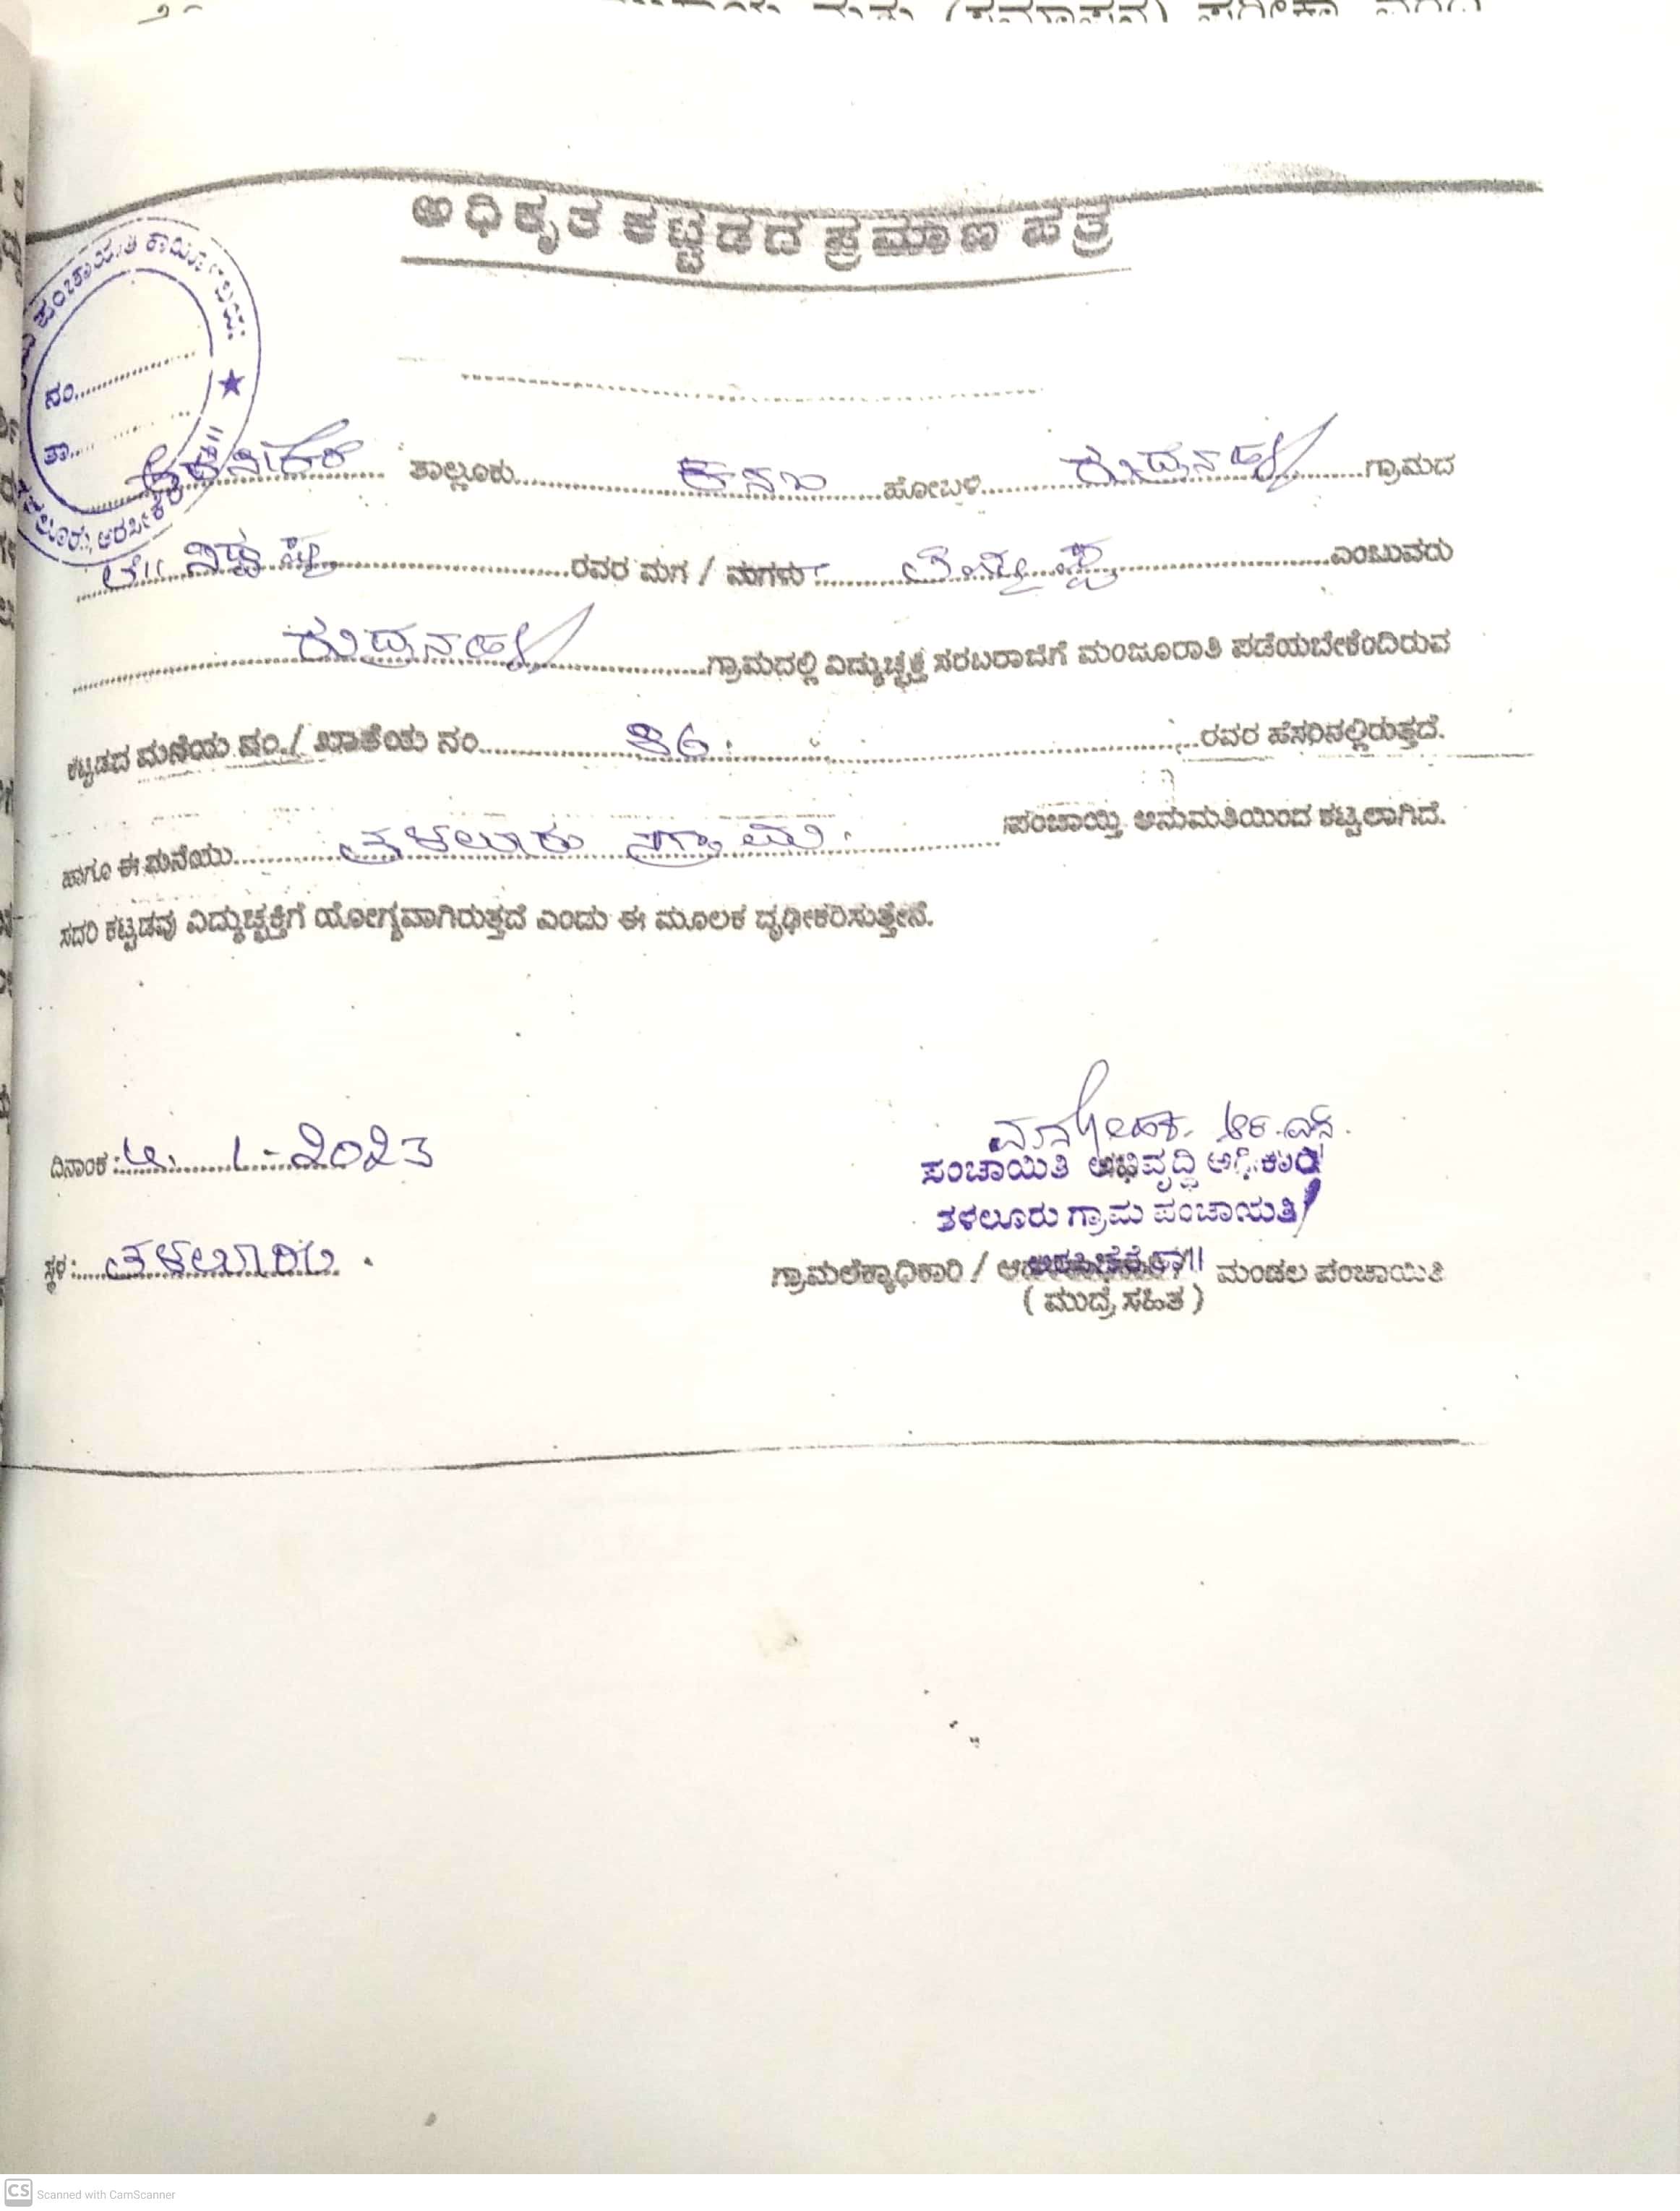 ಅಧಿಕೃತ ಕಟ್ಟಡದ ಪ್ರಮಾಣ ಪತ್ರ
ನಂ
ತಾ
ಅರಸೀಕೆರೆ ತಾಲ್ಲೂಕು ಕಸಬಾ ಹೋಬಳಿ ರುದ್ರನಹಳ್ಳಿ ಗ್ರಾಮದ
ರವರ ಮಗ / ಮಗಳು ತಿಮ್ಮಪ್ಪ ಎಂಬುವರು
ರುದ್ರನಹಳ್ಳಿ ಗ್ರಾಮದಲ್ಲಿ ವಿದ್ಯುಚ್ಛಕ್ತಿ ಸರಬರಾಜಿಗೆ ಮಂಜೂರಾತಿ ಪಡೆಯಬೇಕೆಂದಿರುವ
ಕಟ್ಟಡದ ಮನೆಯ ನಂ. / ಖಾತೆಯ ನಂ. 36. ರವರ ಹೆಸರಿನಲ್ಲಿರುತ್ತದೆ.
ಹಾಗೂ ಈ ಮನೆಯು ತಳಲೂರು ಗ್ರಾಮ. ಪಂಚಾಯ್ತಿ ಅನುಮತಿಯಿಂದ ಕಟ್ಟಲಾಗಿದೆ.
ಸದರಿ ಕಟ್ಟಡವು ವಿದ್ಯುಚ್ಛಕ್ತಿಗೆ ಯೋಗ್ಯವಾಗಿರುತ್ತದೆ ಎಂದು ಈ ಮೂಲಕ ದೃಢೀಕರಿಸುತ್ತೇನೆ.
ದಿನಾಂಕ : 1-2023
ಪಂಚಾಯಿತಿ ಅಭಿವೃದ್ಧಿ ಅಧಿಕಾರಿ
ತಳಲೂರು ಗ್ರಾಮ ಪಂಚಾಯತಿ
ಸ್ಥಳ : ತಳಲೂರು.
ಗ್ರಾಮಲೆಕ್ಕಾಧಿಕಾರಿ / ಅರಸೀಕೆರೆ ತಾ|| ಮಂಡಲ ಪಂಚಾಯಿತಿ
( ಮುದ್ರೆ ಸಹಿತ )
CS Scanned with CamScanner